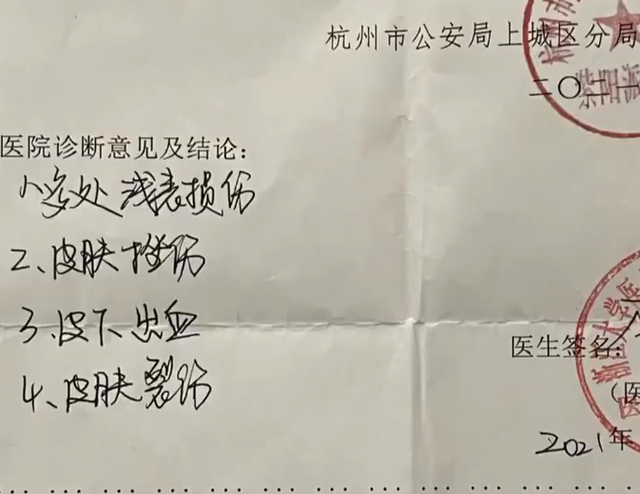 杭州市公安局上城区分局
二〇二
医院诊断意见及结论：
1、多处浅表损伤
2、皮肤挫伤
3、皮下出血
4、皮肤裂伤
医生签名：
（医
2021年